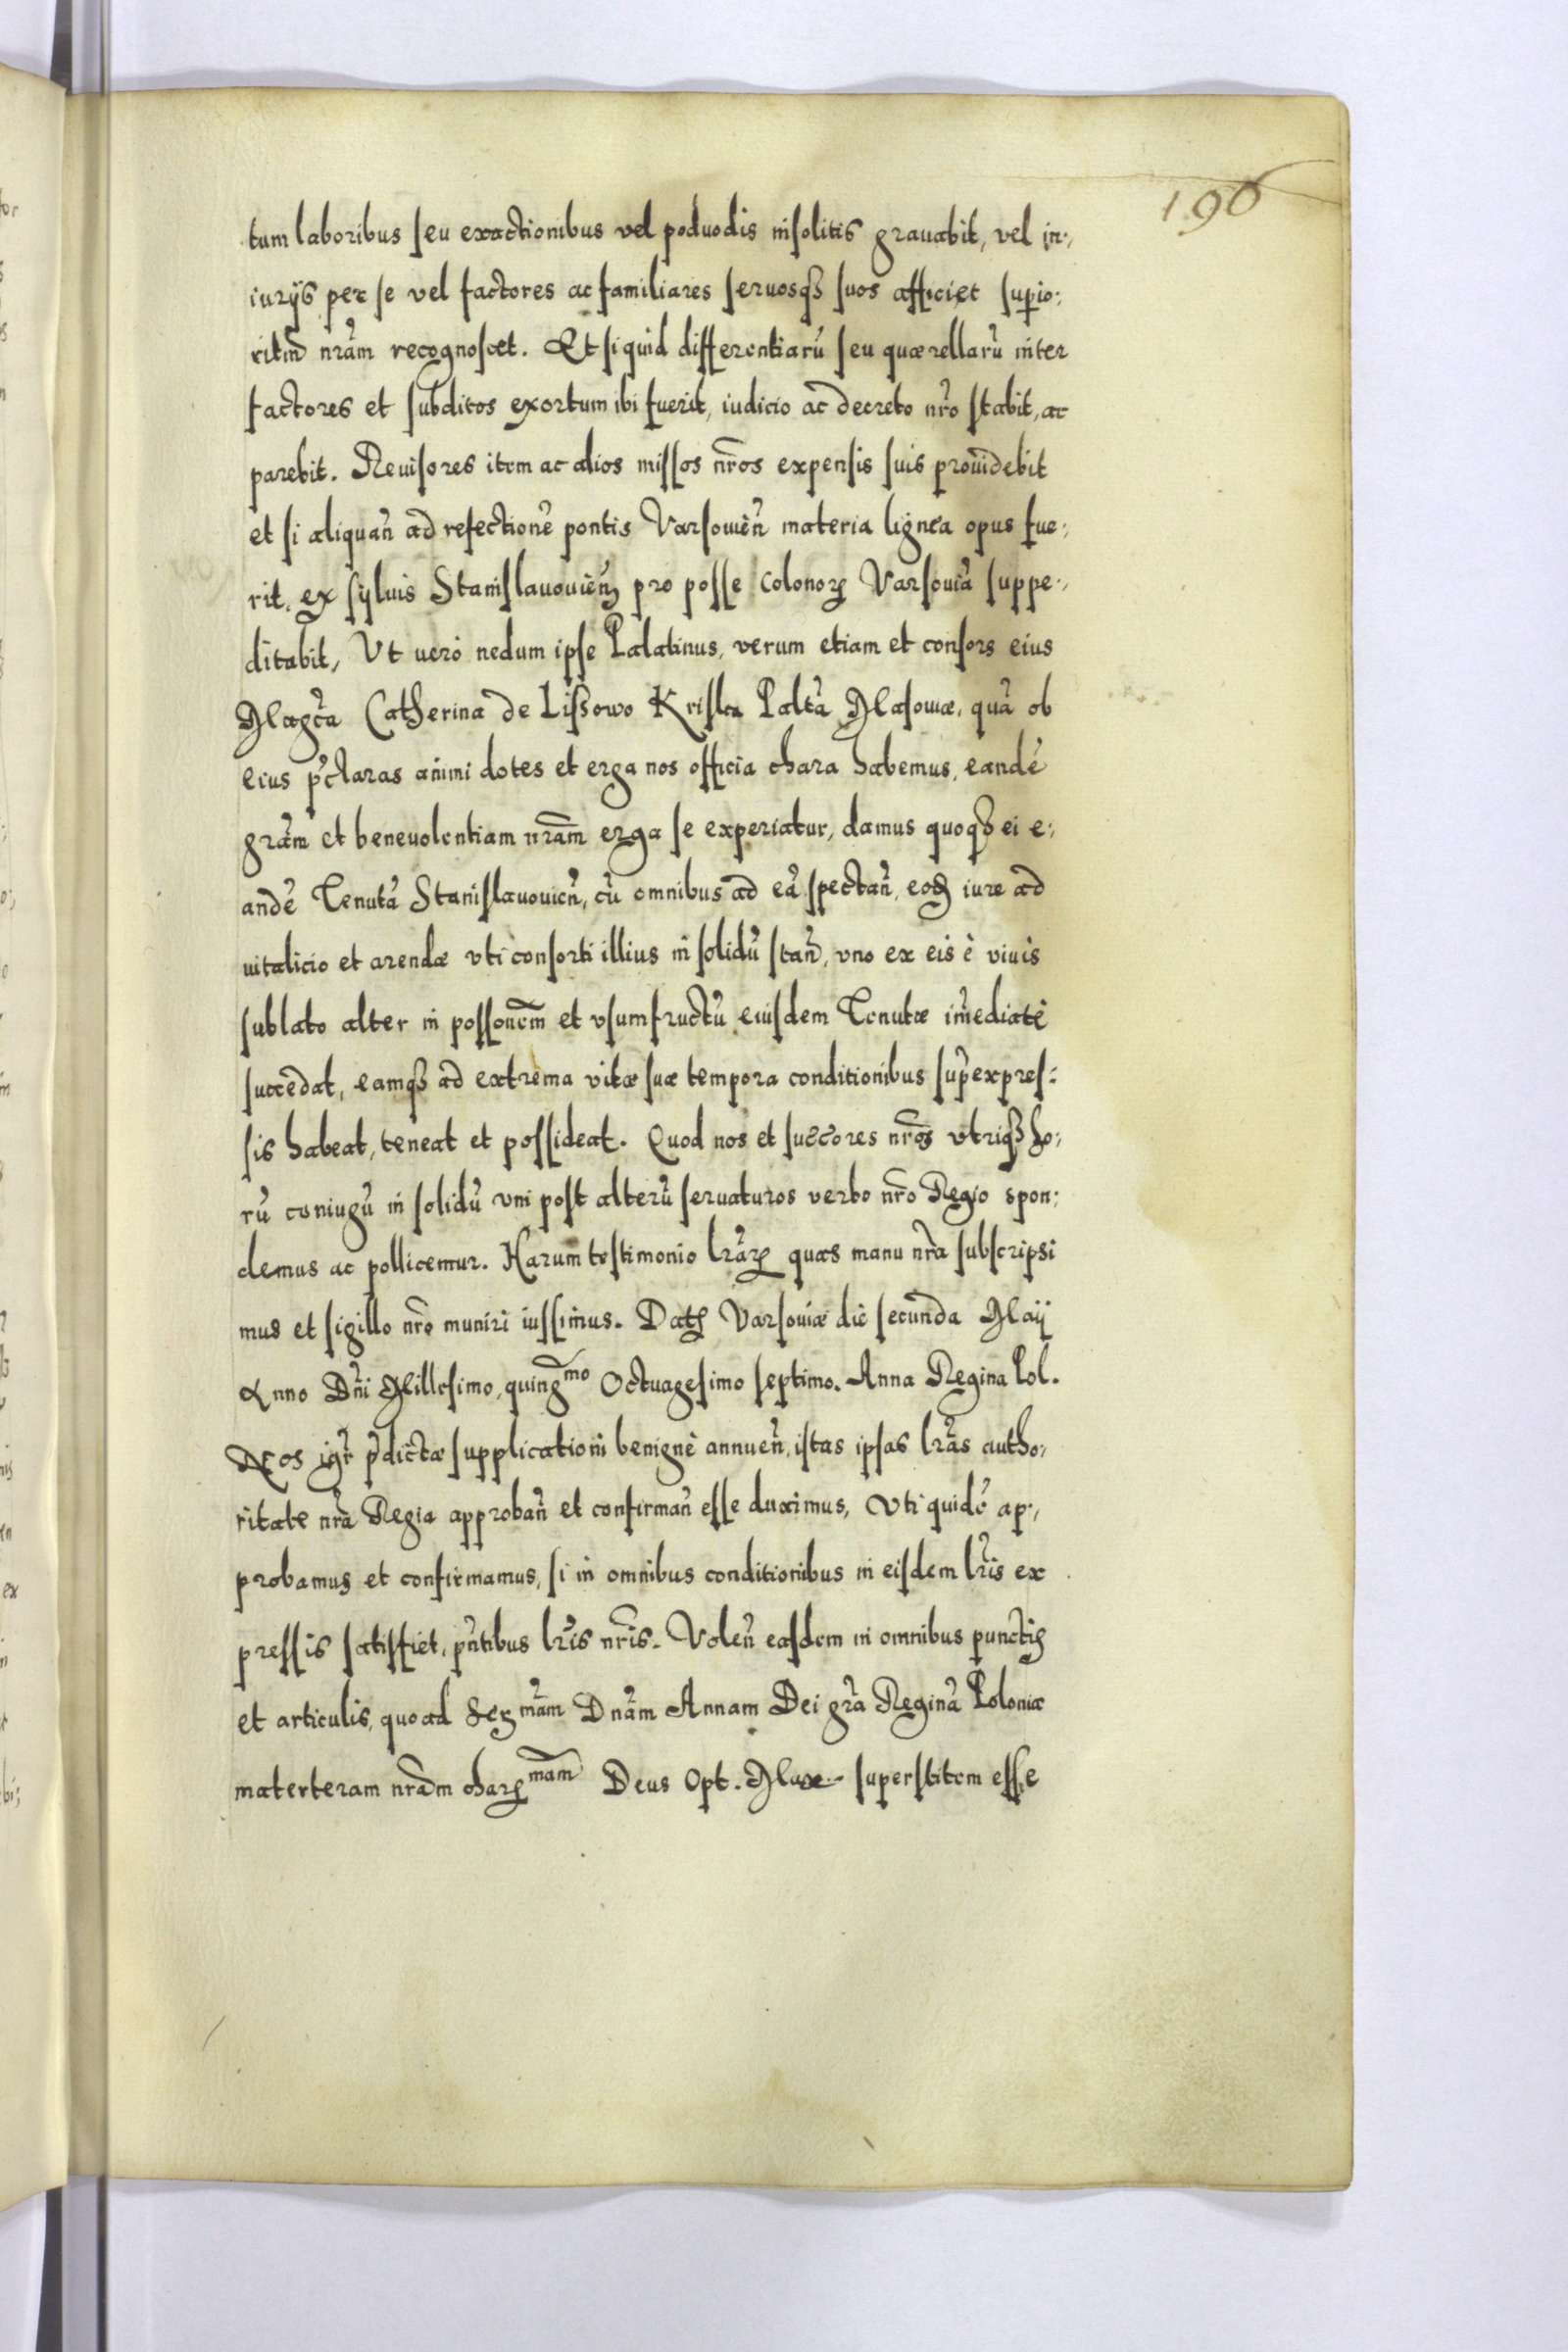 196
tum laboribus seu exactionibus vel poduodis insolitis grauabit, vel in:,
iurijs per se vel factores ac familiares seruosqȝ suos afficiet supio:
ritm̃ nrãm recognoscet. Et si quid differentiarũ seu quærellarũ inter
factores et subditos exortum ibi fuerit, iudicio ac decreto nr̃o stabit, ac
parebit. Reuisores item ac alios missos nr̃os expensis suis prouidebit
et si aliquañ ad refectionẽ pontis Varsouieñ materia lignea opus fue:
rit, ex syluis Stanislauouieñ pro posse colonoꝝ Varsouiã suppe:,
ditabit, Vt uerò nedum ipse Palatinus, verum etiam et consors eius
Magc̃a Catherina de Lissowo Kriska Paltã Masouiæ, quã ob
eius p̃claras animi dotes et erga nos officia chara habemus, eandẽ
grãm et beneuolentiam nrãm erga se experiatur, damus quoqȝ ei e:
andẽ Tenutã Stanislauouieñ, cũ omnibus ad eã spectañ, eoð iure ad
uitalicio et arendæ vti consorti illius in solidũ stañ, vno ex eis è viuis
sublato alter in possonem̃ et vsumfructũ eiusdem Tenutæ im̃ediatè
succedat, eamqȝ ad extrema vitæ suæ tempora conditionibus sup̃expres:
sis habeat, teneat et possideat. Quod nos et succores nr̃os vtriqȝ ho:
rũ coniugũ in solidũ vni post alterũ seruaturos verbo nr̃o Regio spon:
demus ac pollicemur. Harum testimonio lr̃aꝝ quas manu nr̃a subscripsi
mus et sigillo nr̃o muniri iussimus. Datȝ Varsouiæ die secunda Maij
Anno Dñi Millesimo, quingmo Octuagesimo septimo. Anna Regina Pol.
Nos igr̃ p̃dictæ supplicationi benignè annueñ, istas ipsas lr̃as autho:
ritate nr̃a Regia approbañ et confirmañ esse duximus, Vti quidẽ ap:,
probamus et confirmamus, si in omnibus conditionibus in eisdem lr̃is ex
pressis satisfiet, pñtibus lr̃is nr̃is. Voleñ easdem in omnibus punctis
et articulis, quoad Serm̃am Dnãm Annam Dei gr̃a Reginã Poloniæ
materteram nrãm charmam Deus Opt. Max. superstitem esse